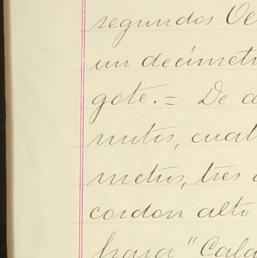 segundos Oe
un decímet
gote.= De a
nutos, cuat
metros, tres
cordon alto
para "Cala